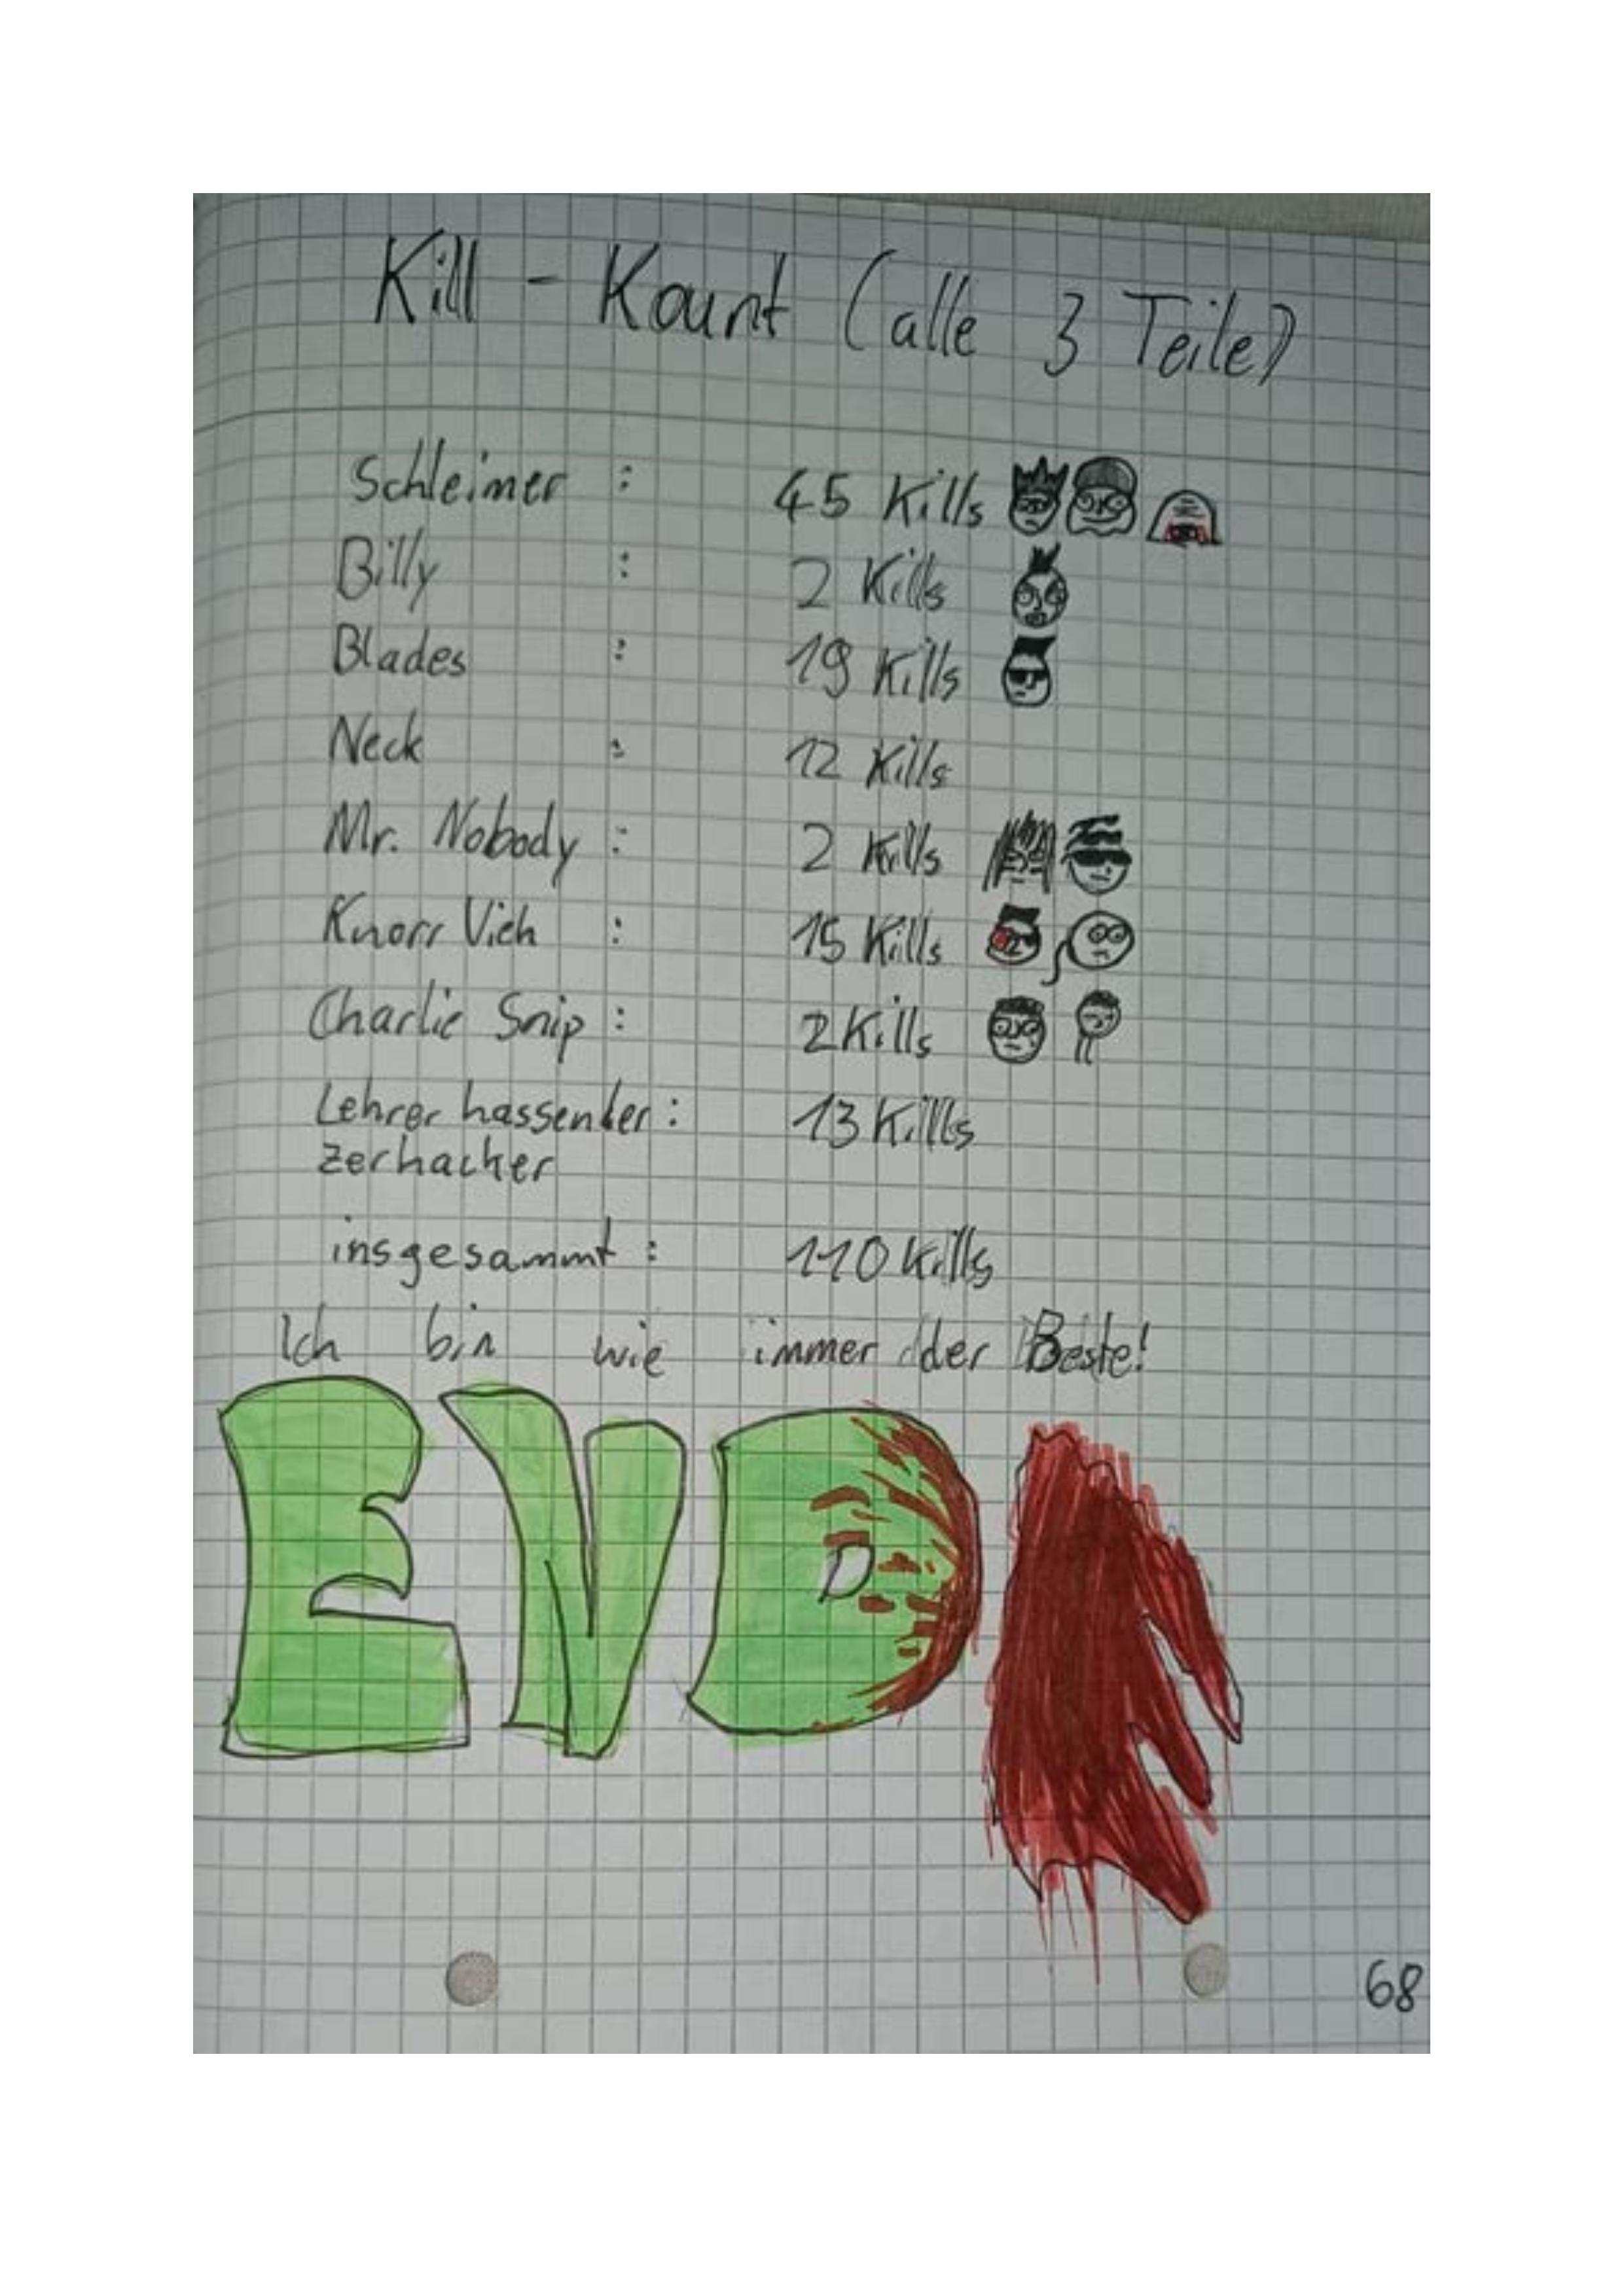 Kill - Kount (alle 3 Teile)
Schleimer : 45 Kills
Billy : 2 Kills
Blades : 19 Kills
Neck : 12 Kills
Mr. Nobody : 2 Kills
Knorr Vich : 15 Kills
Charlie Snip : 2 Kills
Lehrer hassender : 13 Kills
zerhacker
insgesammt : 110 Kills
Ich bin wie immer der Beste!
EVD
68